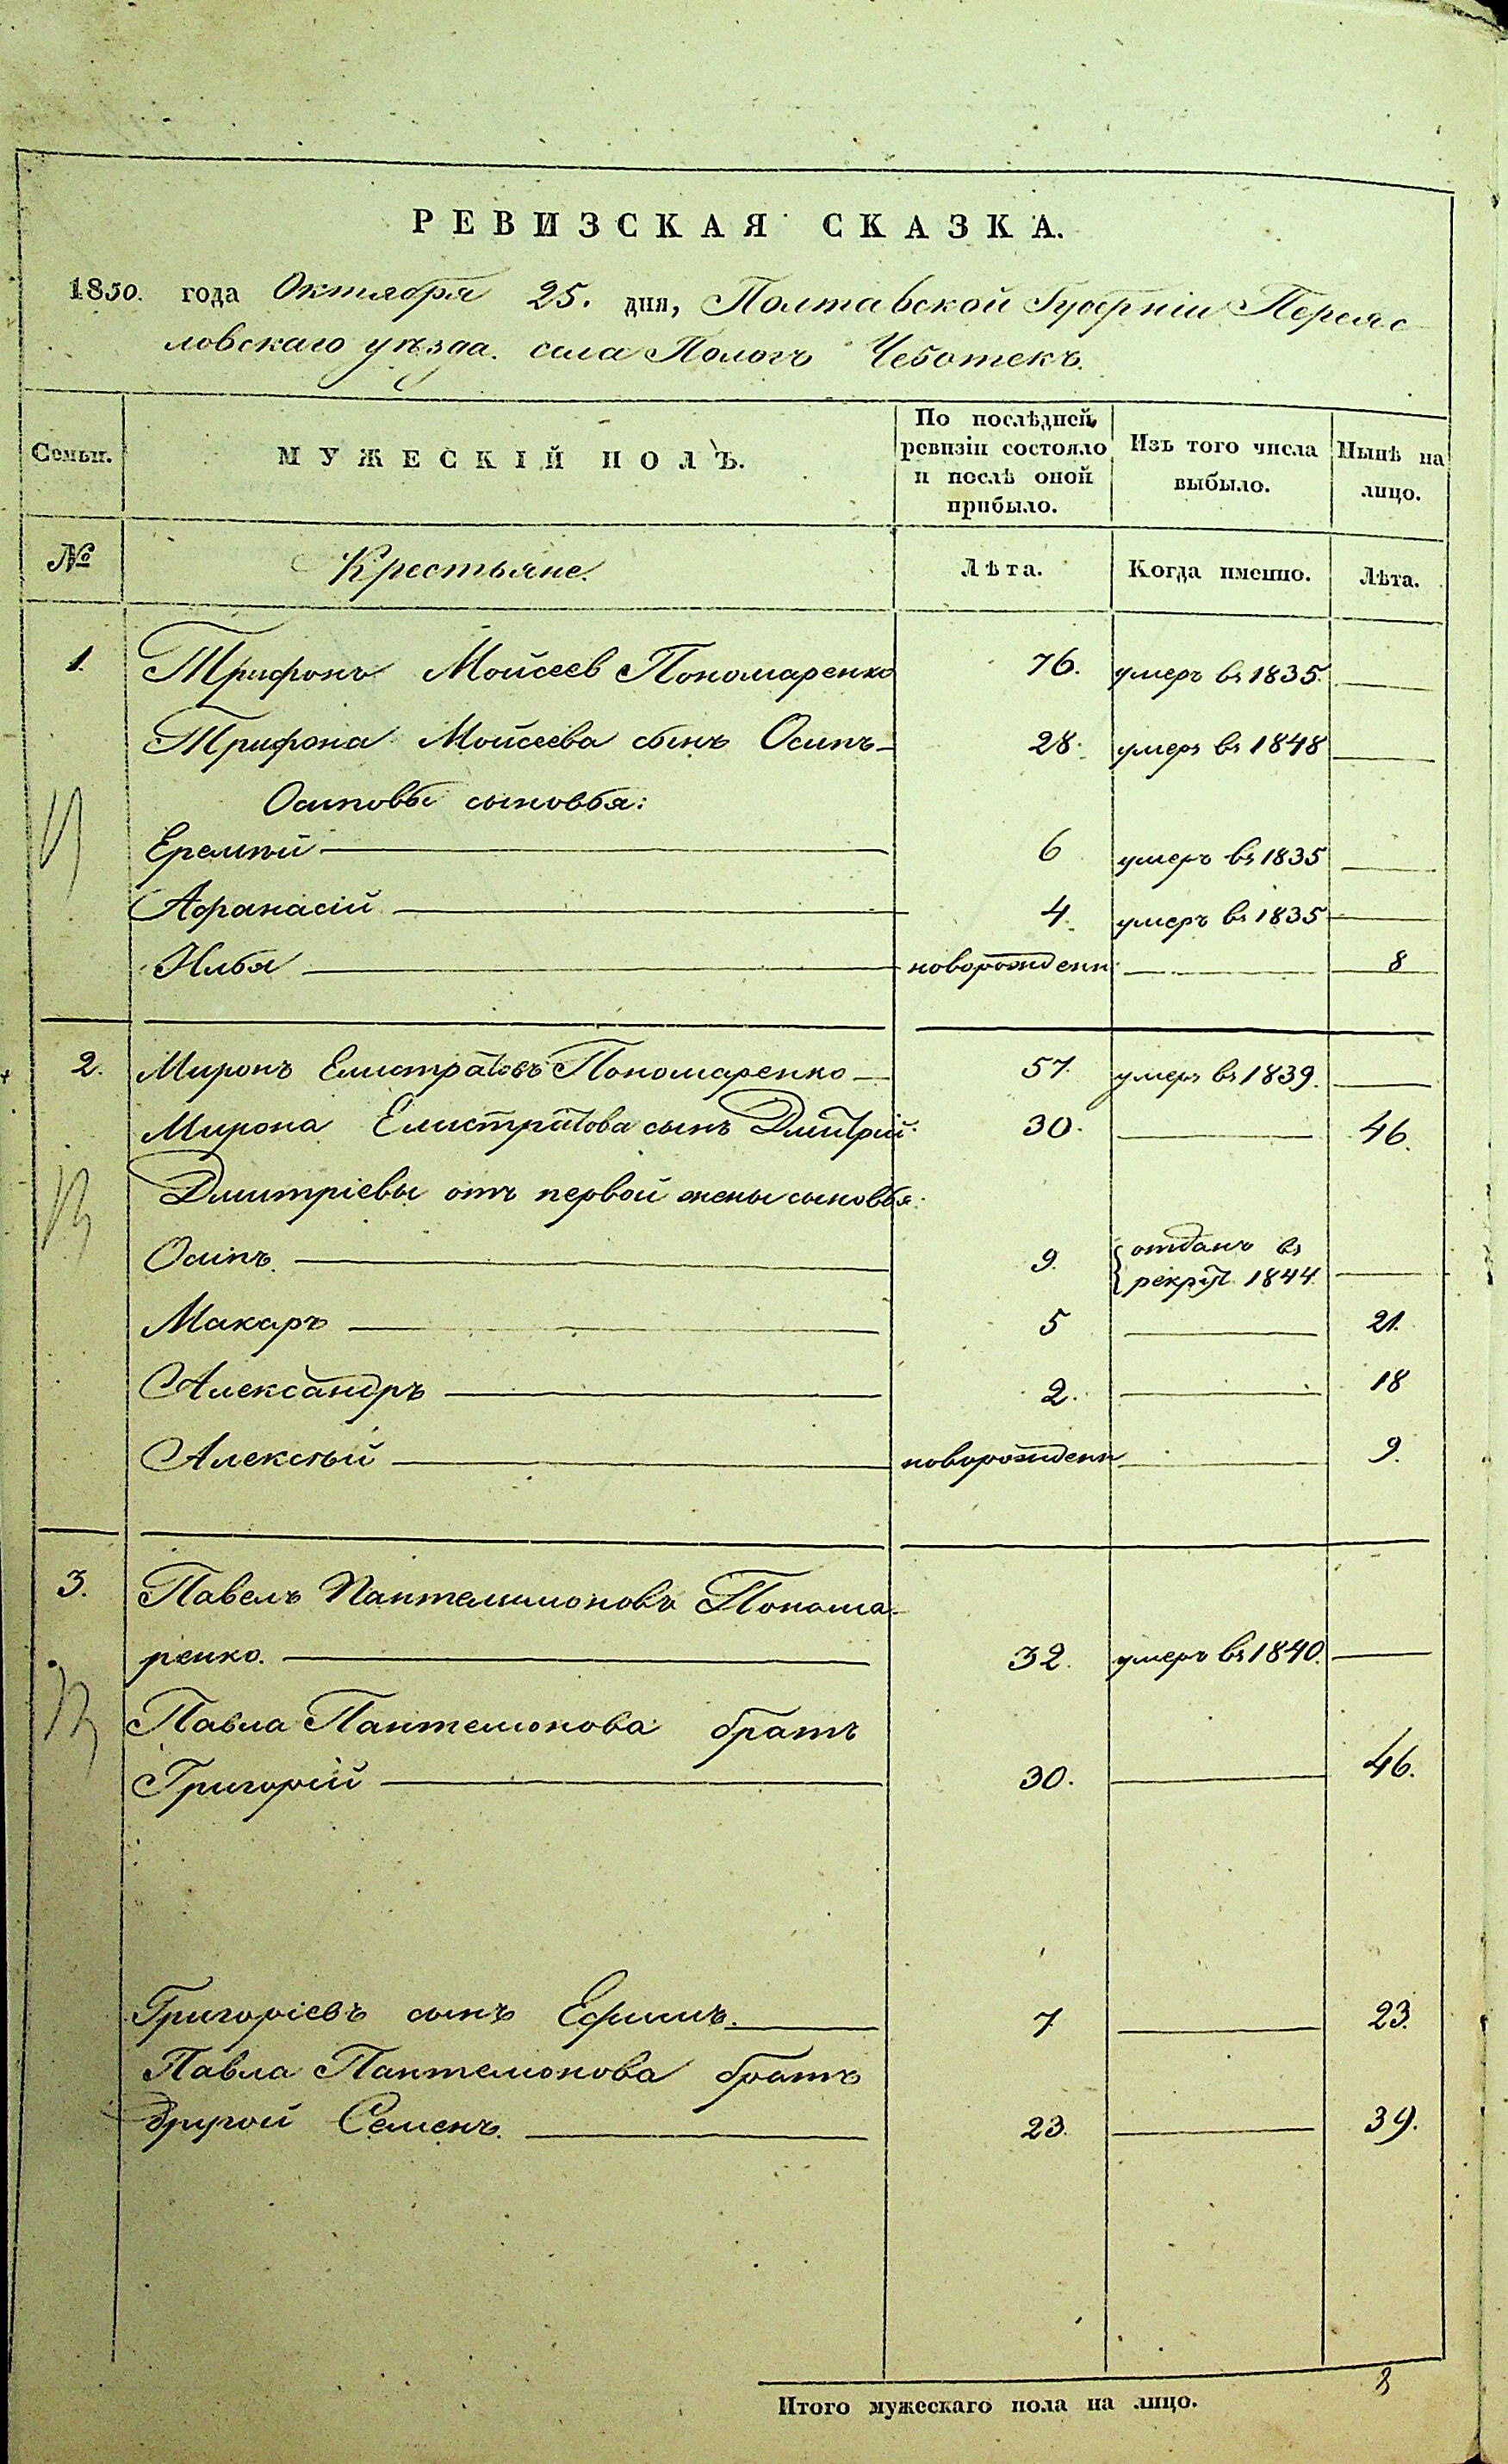 РЕВИЗСКАЯ СКАЗКА.
1850. года Октября 25. дня, Полтавской Губерніи Переяс
ловскаго уѣзда. села Пологъ Чеботекъ.
Семьи. МУЖЕСКІЙ ПОЛЪ. По послѣдней ревизіи состояло и послѣ оной прибыло. Изъ того числа выбыло. Нынѣ на лицо.
№ Крестьяне. Лѣта. Когда именно. Лѣта.
1. Трифонъ Мойсеев Пономаренко 76. умеръ въ 1835.
Трифона Мойсеева сынъ Осипъ 28. умеръ въ 1848
Осиповы сыновья:
Еремѣй 6 умеръ въ 1835
Афанасій 4. умеръ въ 1835
Илья новорожденн 8
2. Миронъ Елистратовъ Пономаренко 57. умеръ въ 1839.
Мирона Елистратова сынъ Дмитрій 30. 46.
Дмитріевы отъ первой жены сыновья:
Осипъ. 9. отданъ въ
рекрут. 1844.
Макаръ 5 21.
Александръ 2. 18
Алексѣй новорожденн 9.
3. Павелъ Пантелимоновъ Понома-
ренко. 32. умеръ въ 1840.
Павла Пантелионова братъ
Григорій 30. 46.
Григоріевъ сынъ Ефимъ. 7 23.
Павла Пантелионова братъ
другой Семенъ. 23. 39.
Итого мужескаго пола на лицо. 8